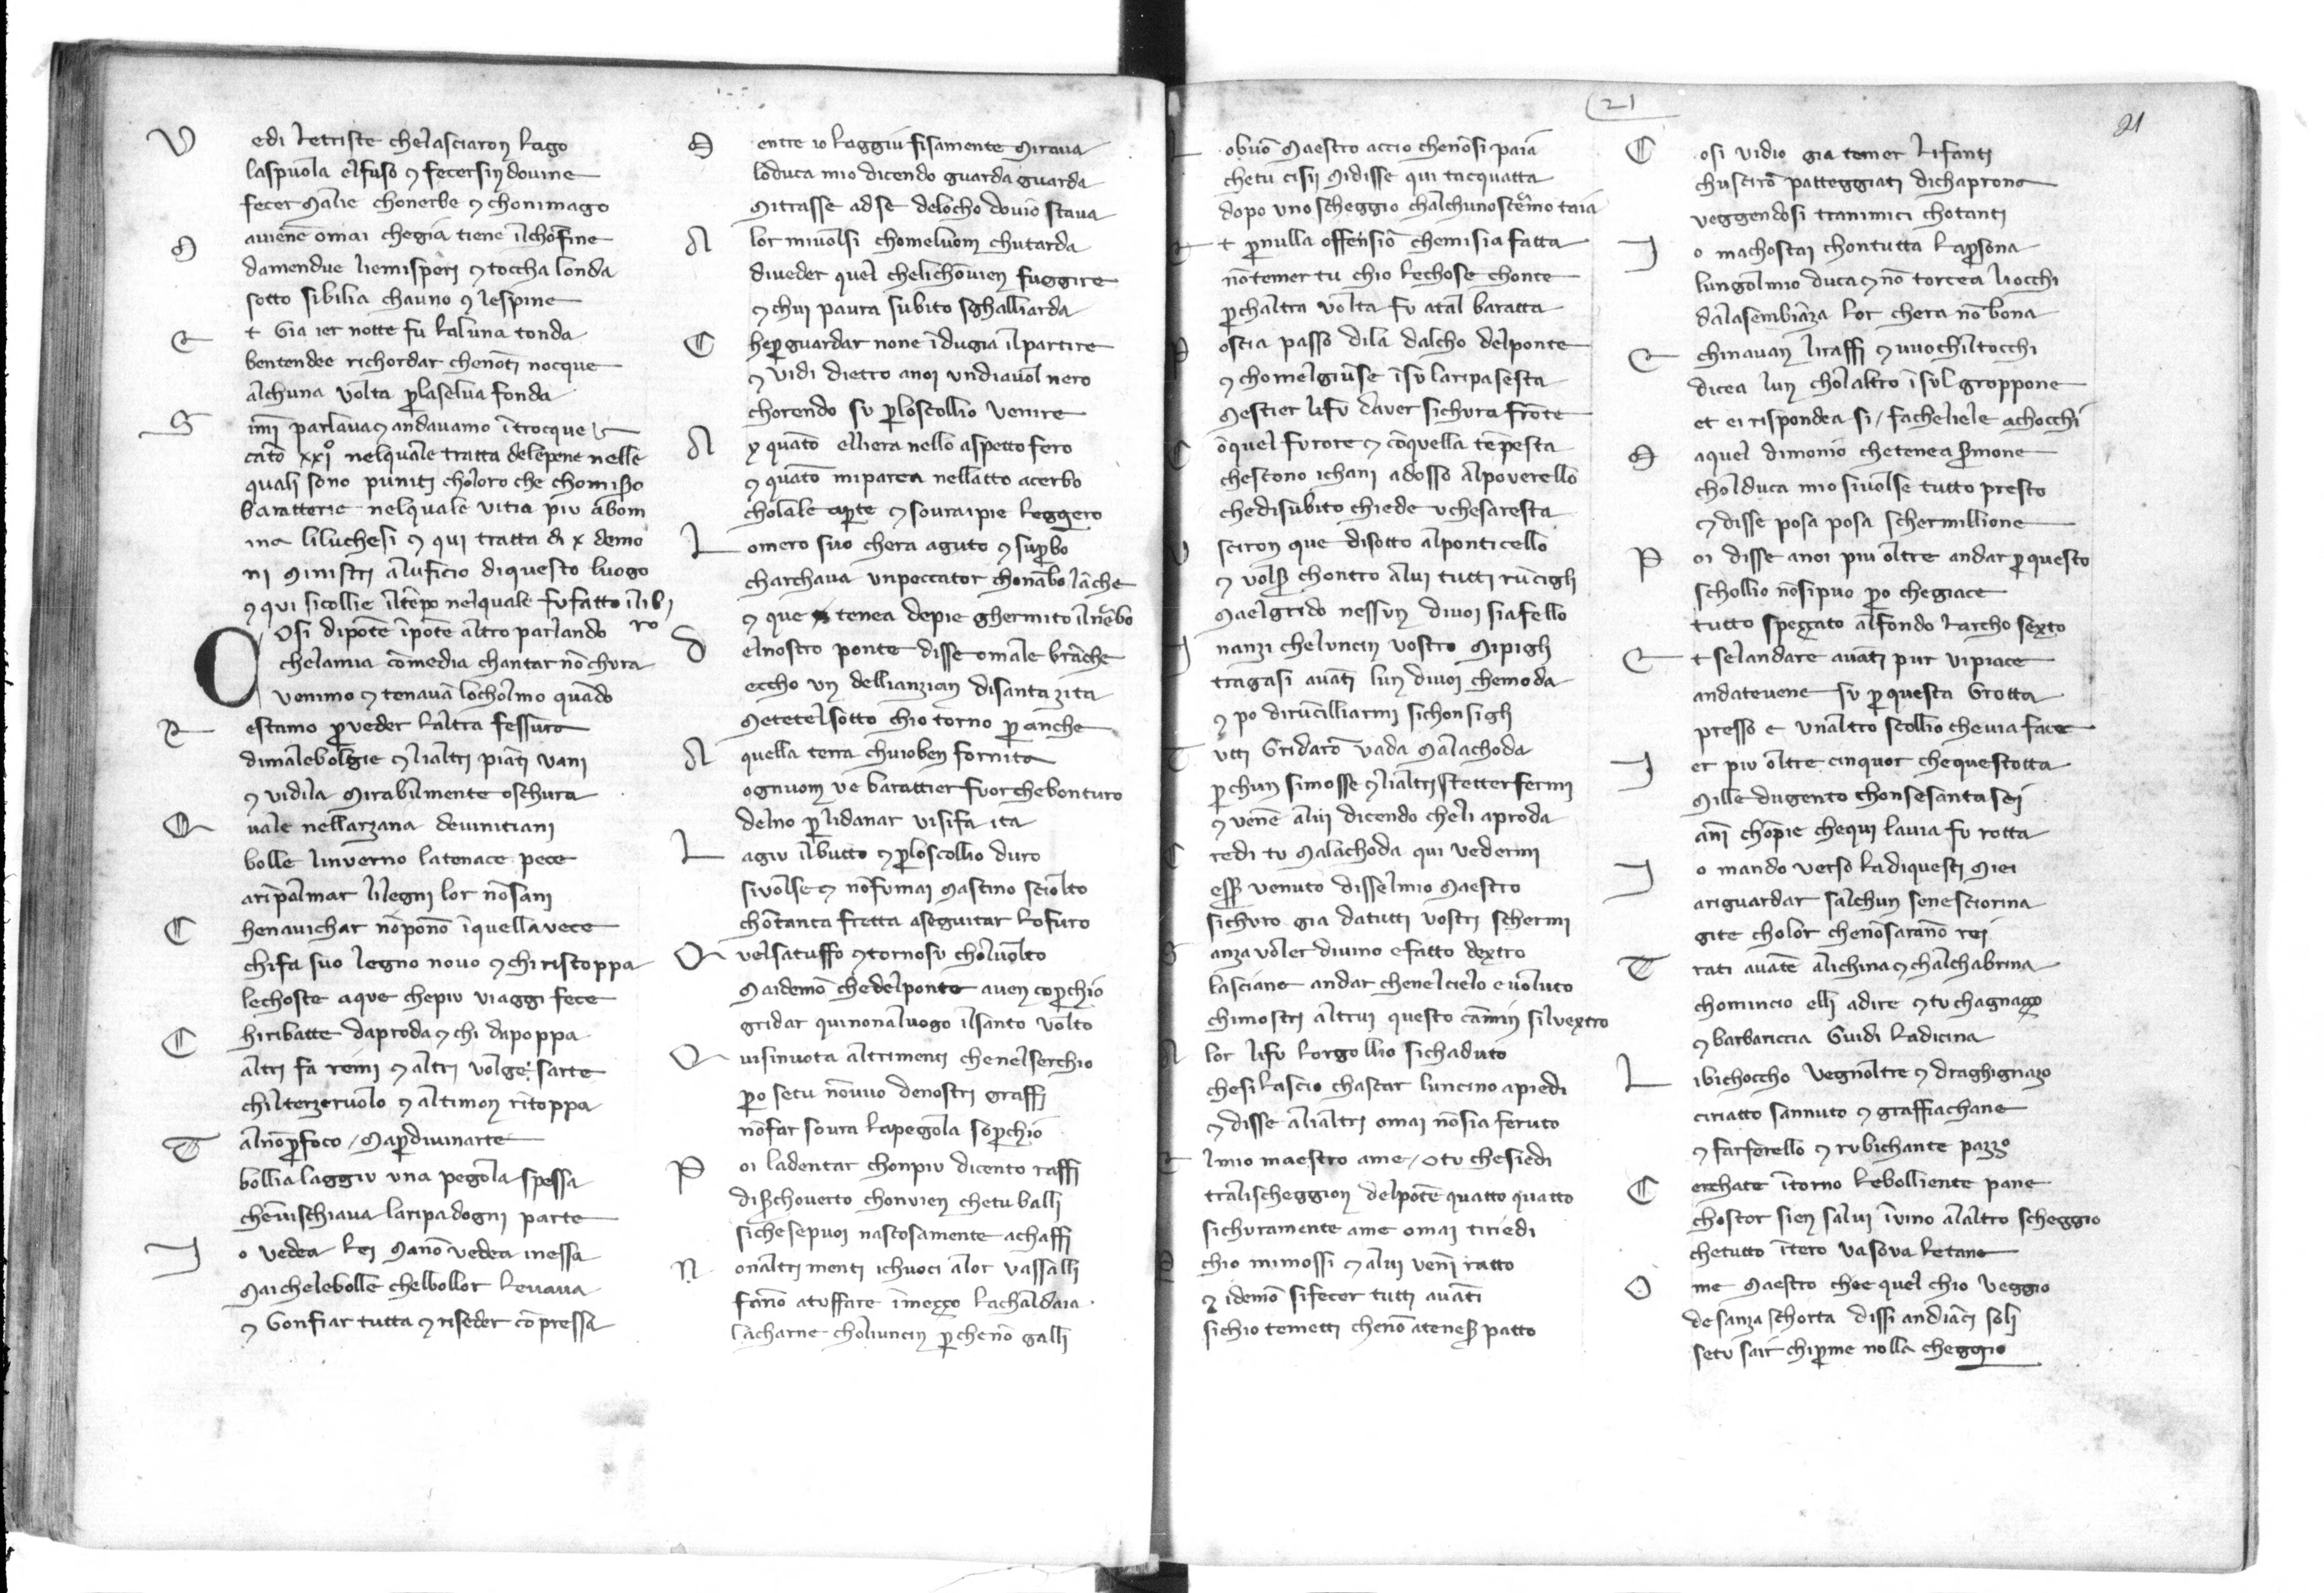 Vedi letriste chelasciaron lago
laspuola elfuso ⁊ fecersin douine
fecer Malie chonerbe ⁊ chonimago
Mauiene omai chegia tiene ilchōfine
damendue liemisperi ⁊ toccha londa
sotto sibilia chauno ⁊ lespine
Et Gia ier notte fu laluna tonda
bentendee richordar chenōti nocque
alchuna volta p̄laselua fonda
Simi parlaua ⁊ andauamo ītrocque
cāto xxiº nelquale tratta delepene nelle
quali sono puniti choloro che chomiẞo
baratterie nelquale vitia piu abom
ina liluchesi ⁊ qui tratta di x demo
ni Ministri aluficio diquesto luogo
⁊ qui sicollie iltēpo nelquale fu fatto ilib
ro
COsi dipōte īpōte altro parlando
chelamia cōmedia chantar nōchura
venimo ⁊ tenauā locholmo quādo
Restamo p̄veder laltra fessura
dimalebolgie ⁊ lialtri piāti vani
⁊ vidila Mirabilmente oschura
Quale nellarzana deuinitiani
bolle linverno latenace pece
aripalmar lilegni lor nōsani
Chenauichar nōponō īquellavece
chifa suo legno nouo ⁊ chi ristoppa
lechoste aque chepiu viaggi fece
Chiribatte daproda ⁊ chi dapoppa
altri fa remi ⁊ altri volge sarte
chilterzeruolo ⁊ altimon rītoppa
Talnōp̄foco / Map̄diuinarte
bollia laggiu vna pegola spessa
cheīuischiaua laripa dogni parte
Io vedea lei Manō vedea inessa
Maichelebolle chelbollor leuaua
⁊ Gonfiar tutta ⁊ riseder cōpressa
Mentre io laggiu fisamente Miraua
lōduca mio dicendo guarda guarda
Mitrasse adse delocho douio staua
Alor miuolsi chomeluom chutarda
diueder quel chelichōuien fuggire
⁊ chui paura subito sghalliarda
Chep̄guardar none īdugia ilpartire
⁊ vidi dietro anoi vndiauol nero
chorendo su p̄loscollio venire
Ay quāto elliera nello aspetto fero
⁊ quāto miparea nellatto acerbo
cholale aperte ⁊ souraipie leggero
Lomero suo chera aguto ⁊ sup̄bo
charchaua vnpeccator chonābo lāche
⁊ que tenea depie ghermito ilnerbo
Delnostro ponte disse omale brāche
eccho vn dellianzian disanta zita
Metetelsotto chio torno p̄ anche
Aquella terra chuioben fornita
ognuom ve barattier fuor chebonturo
delno p̄ lidanar visifa ita
Lagiu ilbutto ⁊ p̄loscollio duro
siuolse ⁊ nōfumai Mastino sciolto
chōtanta fretta aseguitar lofuro
Quelsatuffo ⁊ tornosu choluolto
Maidemō chedelponte auen cop̄chio
gridar quinonaluogo ilsanto volto
Quisinuota altrimenti chenelserchio
p̄o setu nōvuo denostri graffi
nōfar soura lapegola sop̄chio
Poi ladentar chonpiu dicento raffi
disẞchouerto chonvien chetu balli
sichesepuoi nascosamente achaffi
Nonaltri menti ichuoci alor vassalli
fanno atuffare īmezzo lachaldaia
lacharne choliuncin p̄chenō galli
Lobuō Maestro accio chenōsi paia
chetu cisii Midisse qui tacquatta
dopo vno scheggio chalchunoschermo taia
Et p̄nulla offensiō chemisia fatta
nōtemer tu chio lechose chonte
p̄chaltra volta fu atal baratta
Poscia passo dila dalcho delponte
⁊ chomelgiūse īsu laripasesta
Mestier lifu daver sichura frōte
Cōquel furore ⁊ cōquella tēpesta
chescono ichani adosso alpoverello
chedisubito chiede vchesaresta
Vsciron que disotto alponticello
⁊ volẞ chontro alui tutti rūcigli
Maelgrido nessun divoi siafello
Inanzi cheluncin vostro Mipigli
tragasi auāti lun divoi chemoda
⁊ po dirūcilliarmi sichonsigli
Tvtti Gridarō vada Malachoda
p̄chun simosse ⁊ lialtri stetterfermi
⁊ venē alui dicendo cheli aproda
Credi tu Malachoda qui vedermi
esẞ venuto disselmio Maestro
sichuro gia datutti vostri schermi
Sanza voler diuino efatto dextro
lasciane andar chenelcielo e voluto
chimostri altrui questo camin siluextro
Alor lifu lorgollio sichaduto
chesilascio chascar luncino apiedi
⁊ disse alialtri omai nōsia feruto
Elmio maestro ame / Otu chesiedi
tralischeggion delpōte quatto quatto
sichuramente ame omai tiriedi
Pchio mimossi ⁊ alui venni ratto
⁊ idemō sifecer tutti auāti
sichio temetti chenō ateneẞ patto
Cosi vidio gia temer lifanti
chusciro patteggiati dichaprona
veggendosi tranimici chotanti
Io machostai chontutta lap̄sona
lungolmio duca ⁊ nō torcea liocchi
dalasembiāza lor chera nō bona
Echinauan liraffi ⁊ vuochiltocchi
dicea lun cholaltro īsul groppone
et ei rispondea si / facheliele achocchi
Maquel dimonio chetenea sermone
cholduca mio siuolse tutto presto
⁊ disse posa posa schermillione
Poi disse anoi piu oltre andar p̄questo
schollio nōsipuo p̄o chegiace
tutto spezzato alfondo larcho sexto
Et selandare auāti pur vipiace
andatevene su p̄questa Grotta
presso e vnaltro scollio chevia face
Ier piu oltre cinquor chequestotta
Mille dugento chonsesantasei
anni chōpie chequi lauia fu rotta
Io mando verso ladiquesti Miei
ariguardar salchun senesciorina
gite cholor chenōsaranō rei
Trati auāte alichina ⁊ chalchabrina
chomincio elli adire ⁊ tu chagnazzo
⁊ barbariccia Guidi ladicina
Libichoccho vegnoltre ⁊ draghignazo
ciriatto sannuto ⁊ graffiachane
⁊ farferello ⁊ rubichante pazzo
Cerchate ītorno lebolliente pane
chostor sien salui īuino alaltro scheggio
chetutto ītero va sova letane
Ome Maestro chee quel chio veggio
de sanza schorta dissi andiāci soli
setu sair chip̄me nolla cheggio
21
21